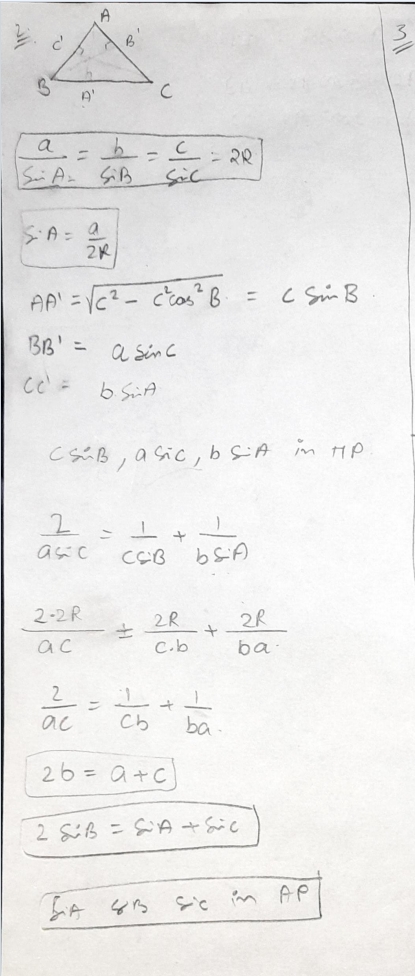 2.
3
A
C' B'
B A' C
a/SinA = b/SinB = c/SinC = 2R
SinA = a/2R
AA' = √(c² - c²cos²B) = c SinB.
BB' = a sinc
CC' = b SinA
c SinB, a SinC, b SinA in HP
2/(a sinc) = 1/(c SinB) + 1/(b SinA)
2·2R/ac = 2R/c.b + 2R/ba.
2/ac = 1/cb + 1/ba.
2b = a+c
2 SinB = SinA + SinC
SinA SinB SinC in AP